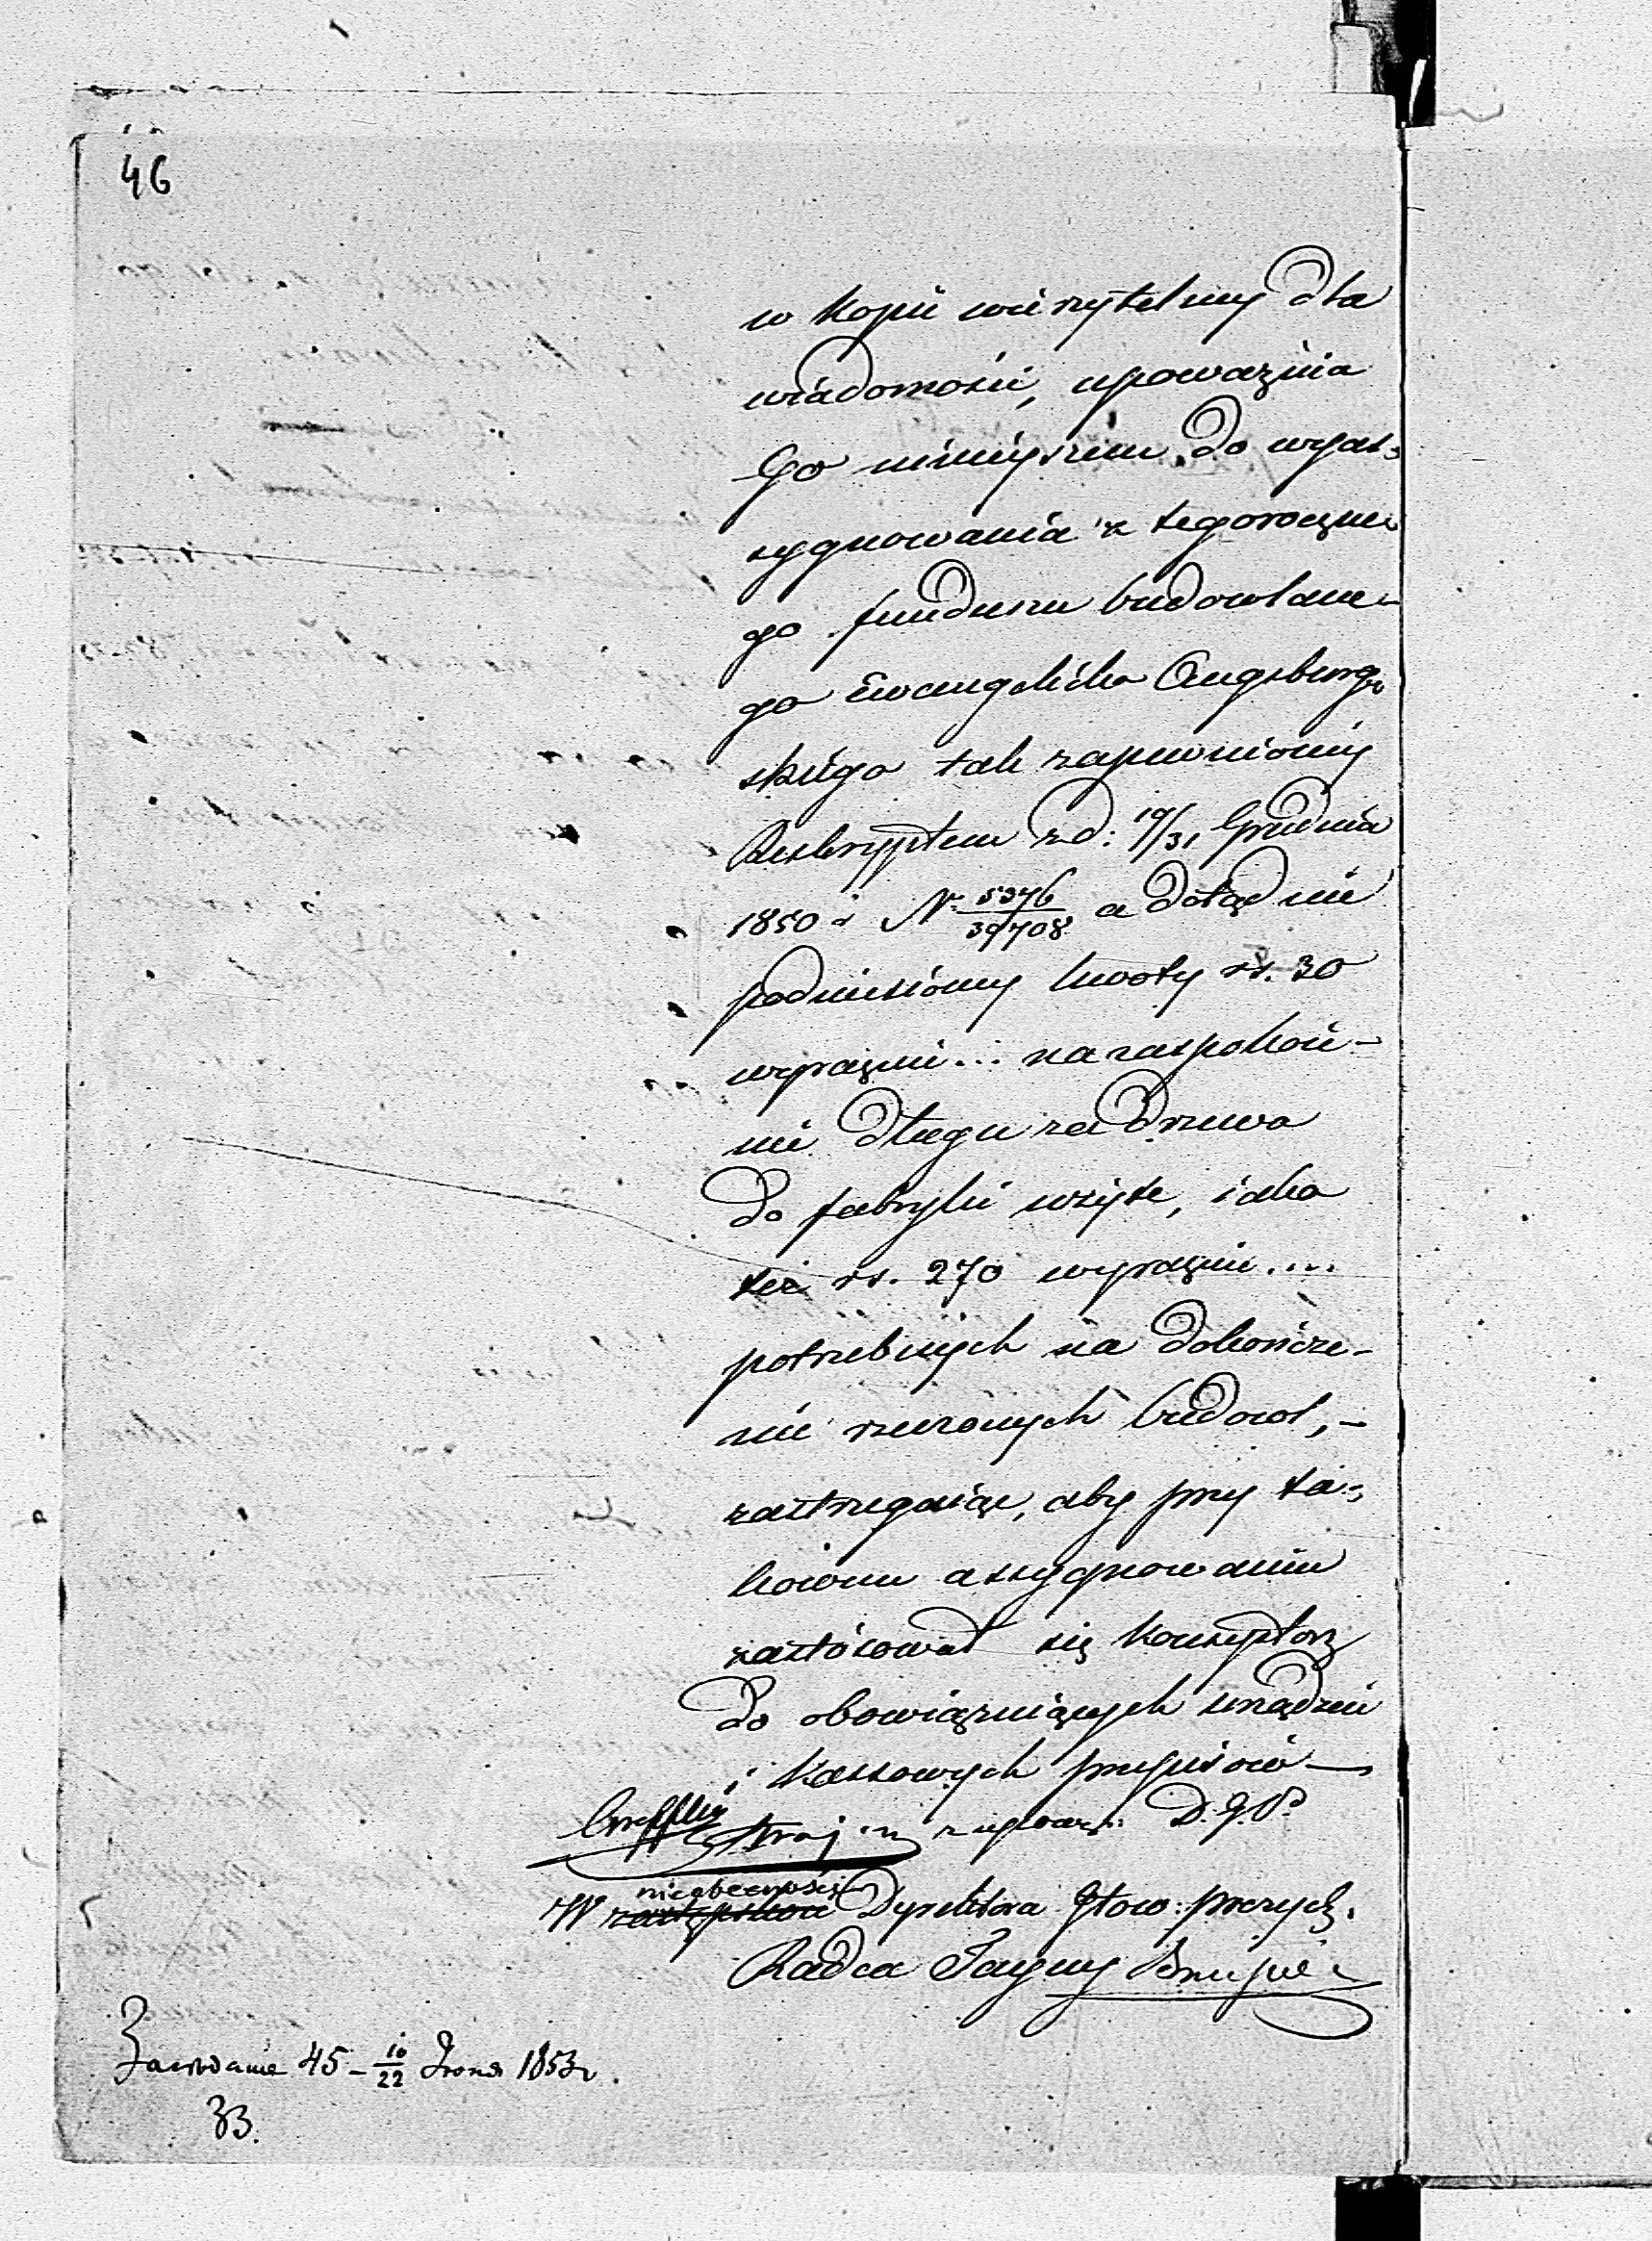 46
w kopii wierzytelnéy dla
wiadomości, upoważnia
Go niniéyszem do wyas-
sygnowania z tegoroczne-
go funduszu budowlane-
go Ewangelicko Augsburg-
skiego tak zapewnionéy
Reskryptem z d: 19/31 Grudnia
1850 r N. 5376/39708 a dotąd nie
podniesionéy kwoty rs. 30
wyraźnie... na zaspokoie-
nie długu za drzewo
do fabryki użyte, iako
też rs. 270 wyraźnie....
potrzebnych na dokończe-
nie rzeczonych budowl, -
zastrzegaiąc, aby przy ta-
kowem assygnowaniu
zastósował się Konsystorz
do obowiązuiących urządzeń
i Kassowych przepisów —
z upoważ: D. G. P.
nieobecności
W zastępstwie Dyrektora Głow: prezyd.
Radca Tayny
Заседание 45 - 10/22 Июня 1853 г.
33.